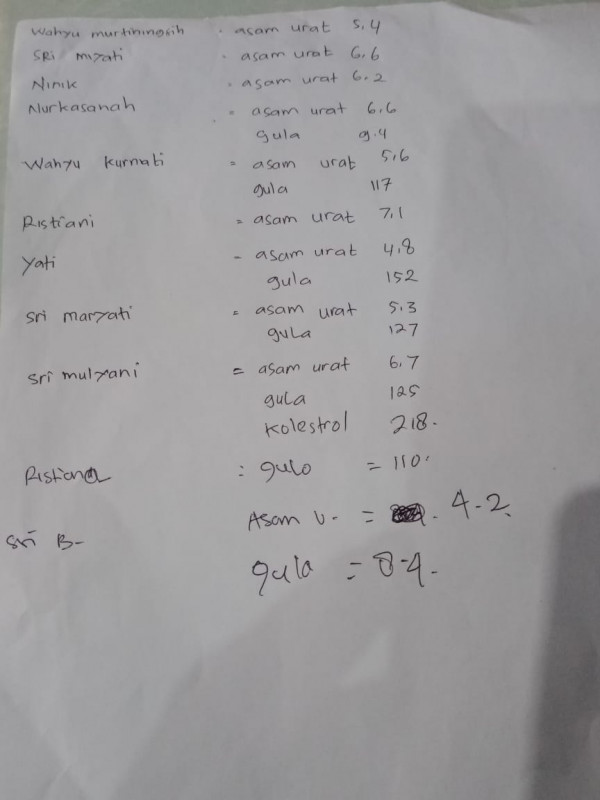 Wahyu murtiningsih . asam urat 5.4
SRi miyati . asam urat 6.6
Ninik . asam urat 6.2
Nurkasanah = asam urat 6.6
gula 9.4
Wahyu kurnati = asam urat 5,6
gula 117
Ristiani = asam urat 7,1
Yati = asam urat 4,8
gula 152
Sri maryati = asam urat 5,3
gula 127
Sri mulyani = asam urat 6,7
gula 125
Kolestrol 218.
Ristiana : gulo = 110.
Asam U- = 4-2.
Sri B-
gula = 84.